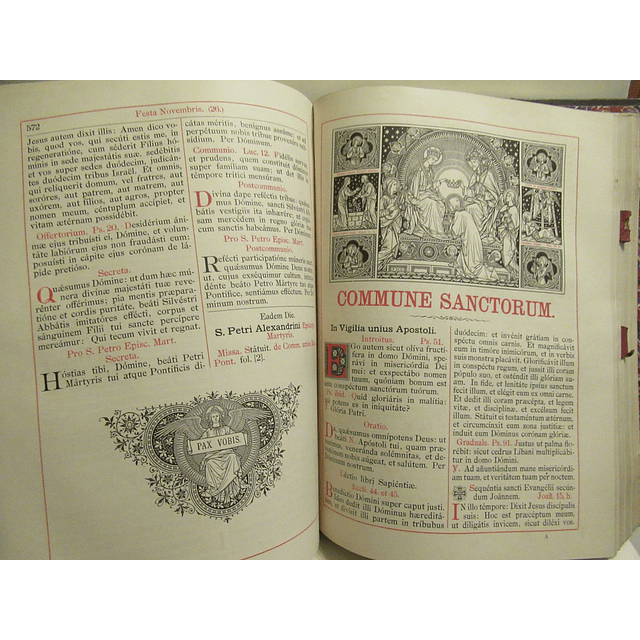 572
Festa Novembris. (26.)
Jesus autem dixit illis: Amen dico vo-
bis, quod vos, qui secúti estis me, in
regeneratióne, cum séderit Fílius hó-
minis in sede majestátis suæ, sedébitis
et vos super sedes duódecim, judicán-
tes duódecim tribus Israël. Et omnis,
qui relíquerit domum, vel fratres, aut
soróres, aut patrem, aut matrem, aut
uxórem, aut fílios, aut agros, propter
nomen meum, céntuplum accípiet, et
vitam ætérnam possidébit.
Offertorium. Ps. 20. Desidérium áni-
mæ ejus tribuísti ei, Dómine, et volun-
táte labiórum ejus non fraudásti eum:
posuísti in cápite ejus corónam de lá-
pide pretióso.
Secreta.
Quǽsumus Dómine: ut dum hæc mú-
nera divínæ majestáti tuæ reve-
rénter offérimus; pia mentis præpara-
tióne et cordis puritáte, beáti Silvéstri
Abbátis imitatóres effécti, corpus et
sánguinem Fílii tui sancte percípere
mereámur: Qui tecum vivit et regnat.
Pro S. Petro Episc. Mart.
Secreta.
Hóstias tibi, Dómine, beáti Petri
Mártyris tui atque Pontíficis di-
cátas méritis, benígnus assúme: et ad
perpétuum nobis tríbue proveníre
Per Dóminum.
Communio. Luc. 12. Fidélis
et prudens, quem constítuit
super famíliam suam: ut det
témpore trítici mensúram.
Postcommunio.
Divína dape reféctis tríbue,
Dómine, sancti Silvéstri
bátis vestígiis ita inhærére; ut
sam mercédem in regno glóriæ
cum sanctis habeámus. Per Dóminum.
Pro S. Petro Episc. Mart.
Postcommunio.
Refécti participatióne múneris
quǽsumus Dómine Deus
ut, cujus exséquimur cultum,
dénte beáto Petro Mártyre tuo
Pontífice, sentiámus efféctum. Per
minum nostrum.
Eadem Die.
S. Petri Alexandrini
Mártyris.
Missa. Státuit. de Comm.
Pont. fol. [2].
PAX VOBIS
COMMUNE SANCTORUM.
In Vigilia unius Apostoli.
Introitus. Ps. 51.
Ego autem sicut olíva fructí-
fera in domo Dómini, spe-
rávi in misericórdia Dei
mei: et exspectábo nomen
tuum, quóniam bonum est
ante conspéctum sanctórum tuórum.
Ps. ibid. Quid gloriáris in malítia:
qui potens es in iniquitáte?
℣. Glória Patri.
Oratio.
Da, quǽsumus omnípotens Deus: ut
beáti N. Apóstoli tui, quam præ-
venímus, veneránda solémnitas, et de-
votiónem nobis áugeat, et salútem. Per
Dóminum nostrum.
Léctio libri Sapiéntiæ.
Eccli. 44. et 45.
Benedíctio Dómini super caput justi.
Ideo dedit illi Dóminus hæreditá-
tem, et divísit illi partem in tríbubus
duódecim: et invénit grátiam in con-
spéctu omnis carnis. Et magnificávit
eum in timóre inimicórum, et in verbis
suis monstra placávit. Glorificávit illum
in conspéctu regum, et jussit illi coram
pópulo suo, et osténdit illi glóriam su-
am. In fide, et lenitáte ipsíus sanctum
fecit illum, et elégit eum ex omni carne.
Et dedit illi coram præcépta, et legem
vitæ, et disciplínæ, et excélsum fecit
illum. Státuit ei testaméntum ætérnum,
et circumcínxit eum zona justítiæ: et
índuit eum Dóminus corónam glóriæ.
Graduale. Ps. 91. Justus ut palma flo-
rébit: sicut cedrus Líbani multiplicábi-
tur in domo Dómini.
℣. Ad annuntiándum mane misericórdi-
am tuam, et veritátem tuam per noctem.
Sequéntia sancti Evangélii secún-
dum Joánnem. Joan. 15. b.
In illo témpore: Dixit Jesus discípulis
suis: Hoc est præcéptum meum,
ut diligátis ínvicem, sicut diléxi vos.